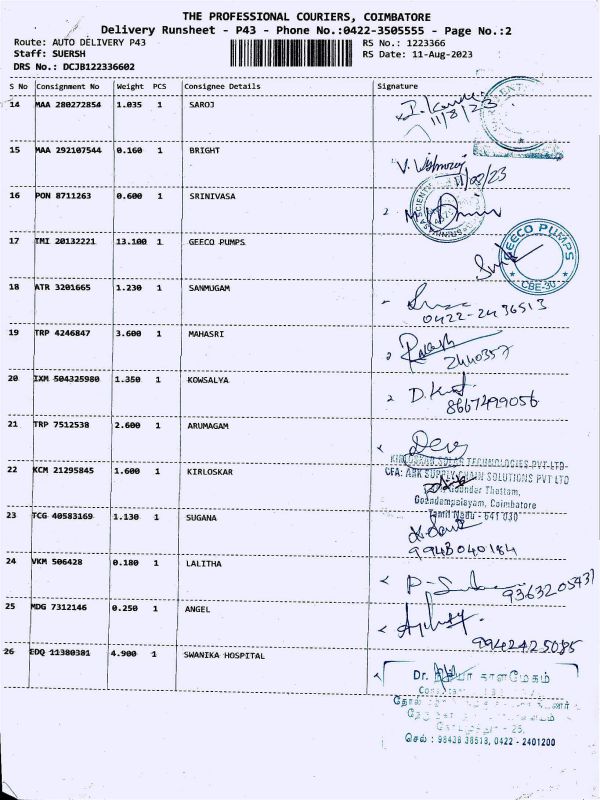 THE PROFESSIONAL COURIERS, COIMBATORE
Delivery Runsheet - P43 - Phone No.:0422-3505555 - Page No.:2
Route: AUTO DELIVERY P43 RS No.: 1223366
Staff: SUERSH RS Date: 11-Aug-2023
DRS No.: DCJB122336602
S No Consignment No Weight PCS Consignee Details Signature
14 MAA 280272854 1.035 1 SAROJ
11/8/23
15 MAA 292107544 0.160 1 BRIGHT
11/08/23
16 PON 8711263 0.600 1 SRINIVASA
17 IMI 20132221 13.100 1 GEECO PUMPS
GEECO PUMPS
CBE-30
18 ATR 3201665 1.230 1 SANMUGAM
0422-2436513
19 TRP 4246847 3.600 1 MAHASRI
2440357
20 IXM 504325980 1.350 1 KOWSALYA
8667499056
21 TRP 7512538 2.600 1 ARUMAGAM
KIRLOSKAR SOLAR TECHNOLOGIES PVT-LTD
22 KCM 21295845 1.600 1 KIRLOSKAR
CFA: ARK SUPPLY CHAIN SOLUTIONS PVT LTD
Goundar Thottam,
Goundampalayam, Coimbatore
Tamil Nadu - 641 030
23 TCG 40583169 1.130 1 SUGANA
9943040164
24 VKM 506428 0.180 1 LALITHA
9363205437
25 MDG 7312146 0.250 1 ANGEL
9942425085
26 EDQ 11380381 4.900 1 SWANIKA HOSPITAL
Dr. காளமேகம்
செல் : 98438 38513, 0422 - 2401200